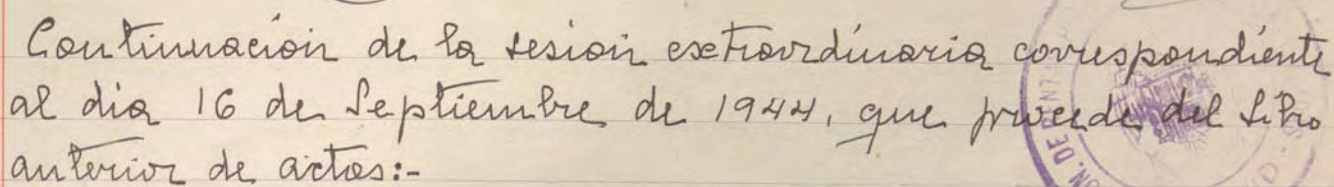 Continuación de la sesión extraordinaria correspondiente
al dia 16 de Septiembre de 1944, que procede del libro
anterior de actas:-